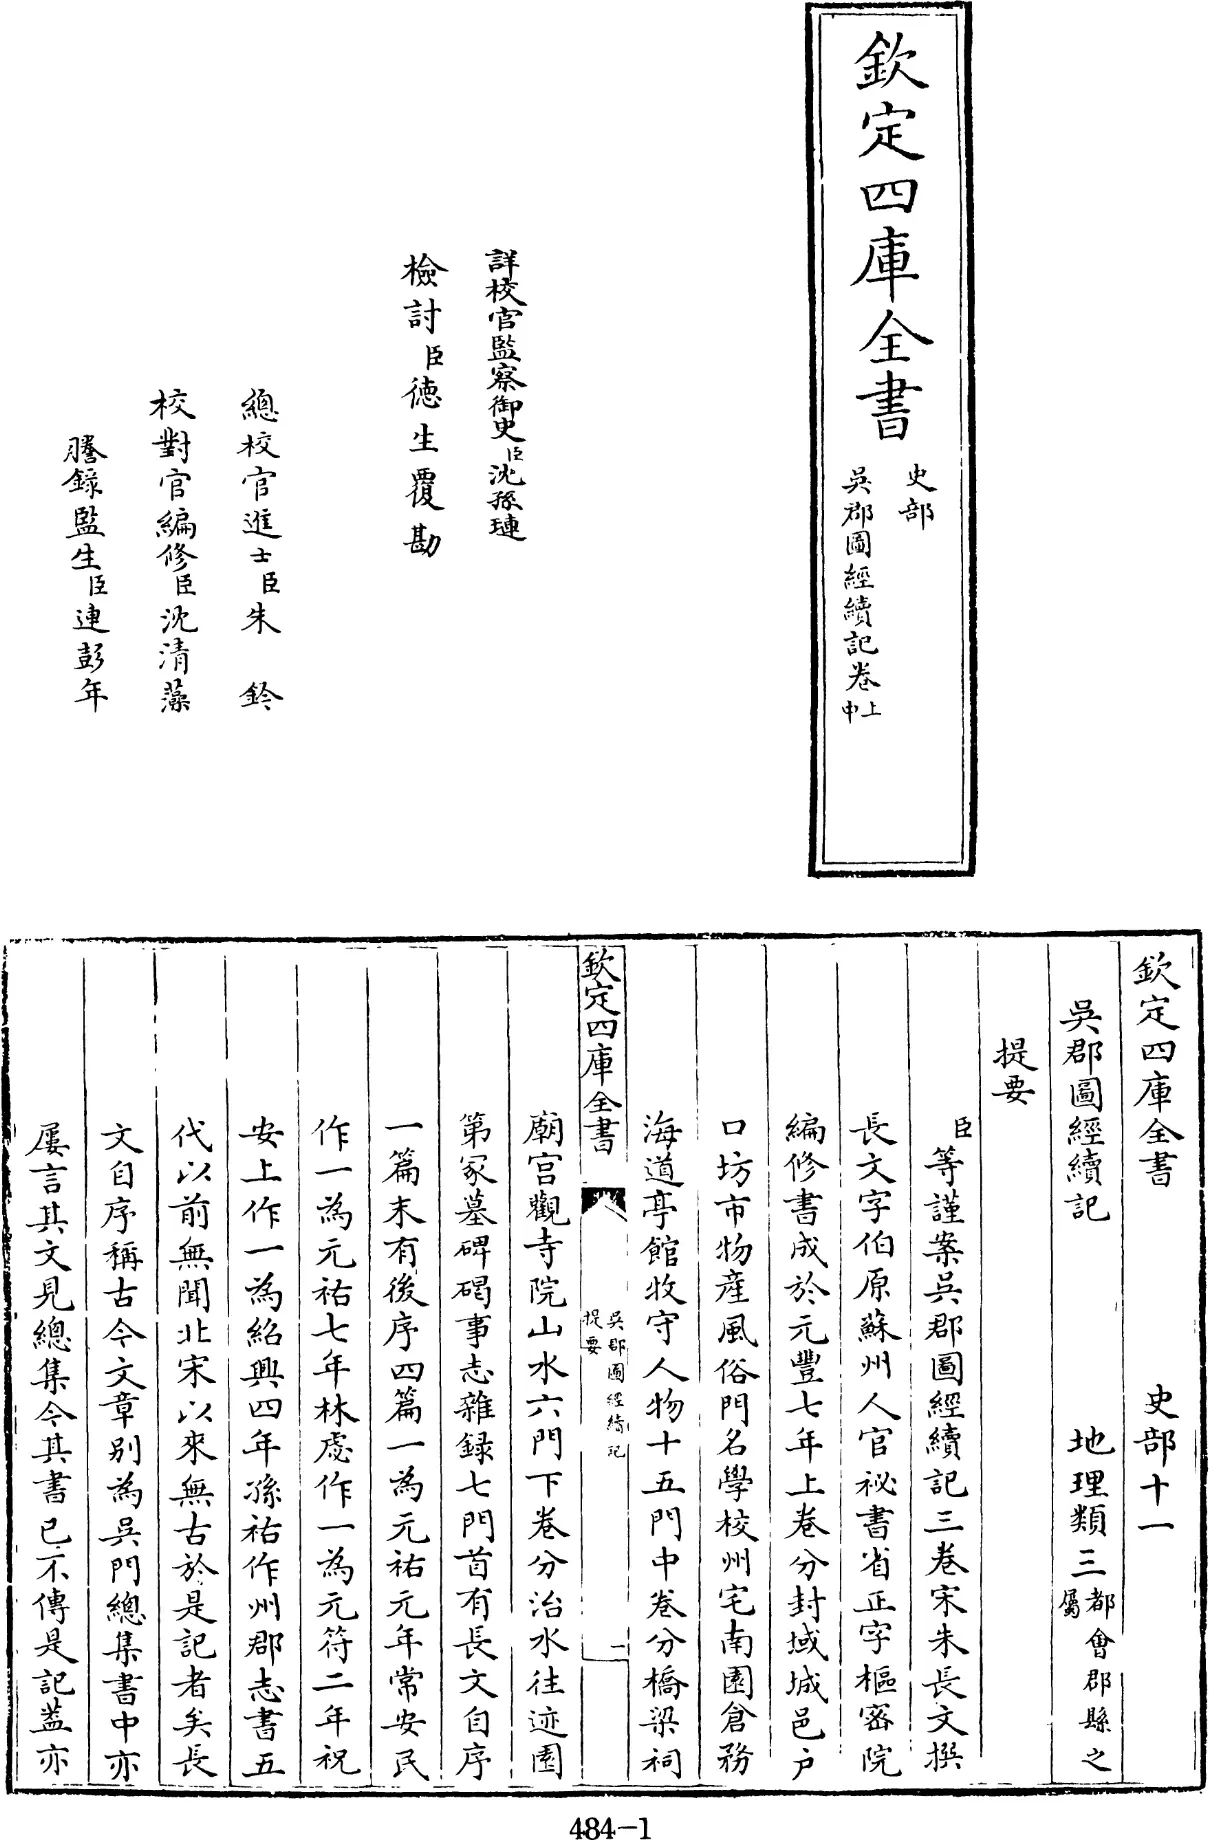 欽定四庫全書
史部
吳郡圖經續記卷上中
詳校官監察御史臣沈孫璉
檢討臣德生覆勘
總校官進士臣朱鈐
校對官編修臣沈清藻
謄錄監生臣連彭年
欽定四庫全書　史部十一
吳郡圖經續記　地理類三都會郡縣之屬
提要
臣等謹案吳郡圖經續記三卷宋朱長文撰
長文字伯原蘇州人官祕書省正字樞密院
編修書成於元豐七年上卷分封域城邑户
口坊市物產風俗門名學校州宅南園倉務
海道亭館牧守人物十五門中卷分橋梁祠
欽定四庫全書
吳郡圖經續記
提要
一
廟宫觀寺院山水六門下卷分治水往迹園
第冢墓碑碣事志雜録七門首有長文自序
一篇末有後序四篇一為元祐元年常安民
作一為元祐七年林虙作一為元符二年祝
安上作一為紹興四年孫祐作州郡志書五
代以前無聞北宋以來無古於是記者矣長
文自序稱古今文章别為吳門總集書中亦
屢言其文見總集今其書已不傳是記蓋亦
484-1